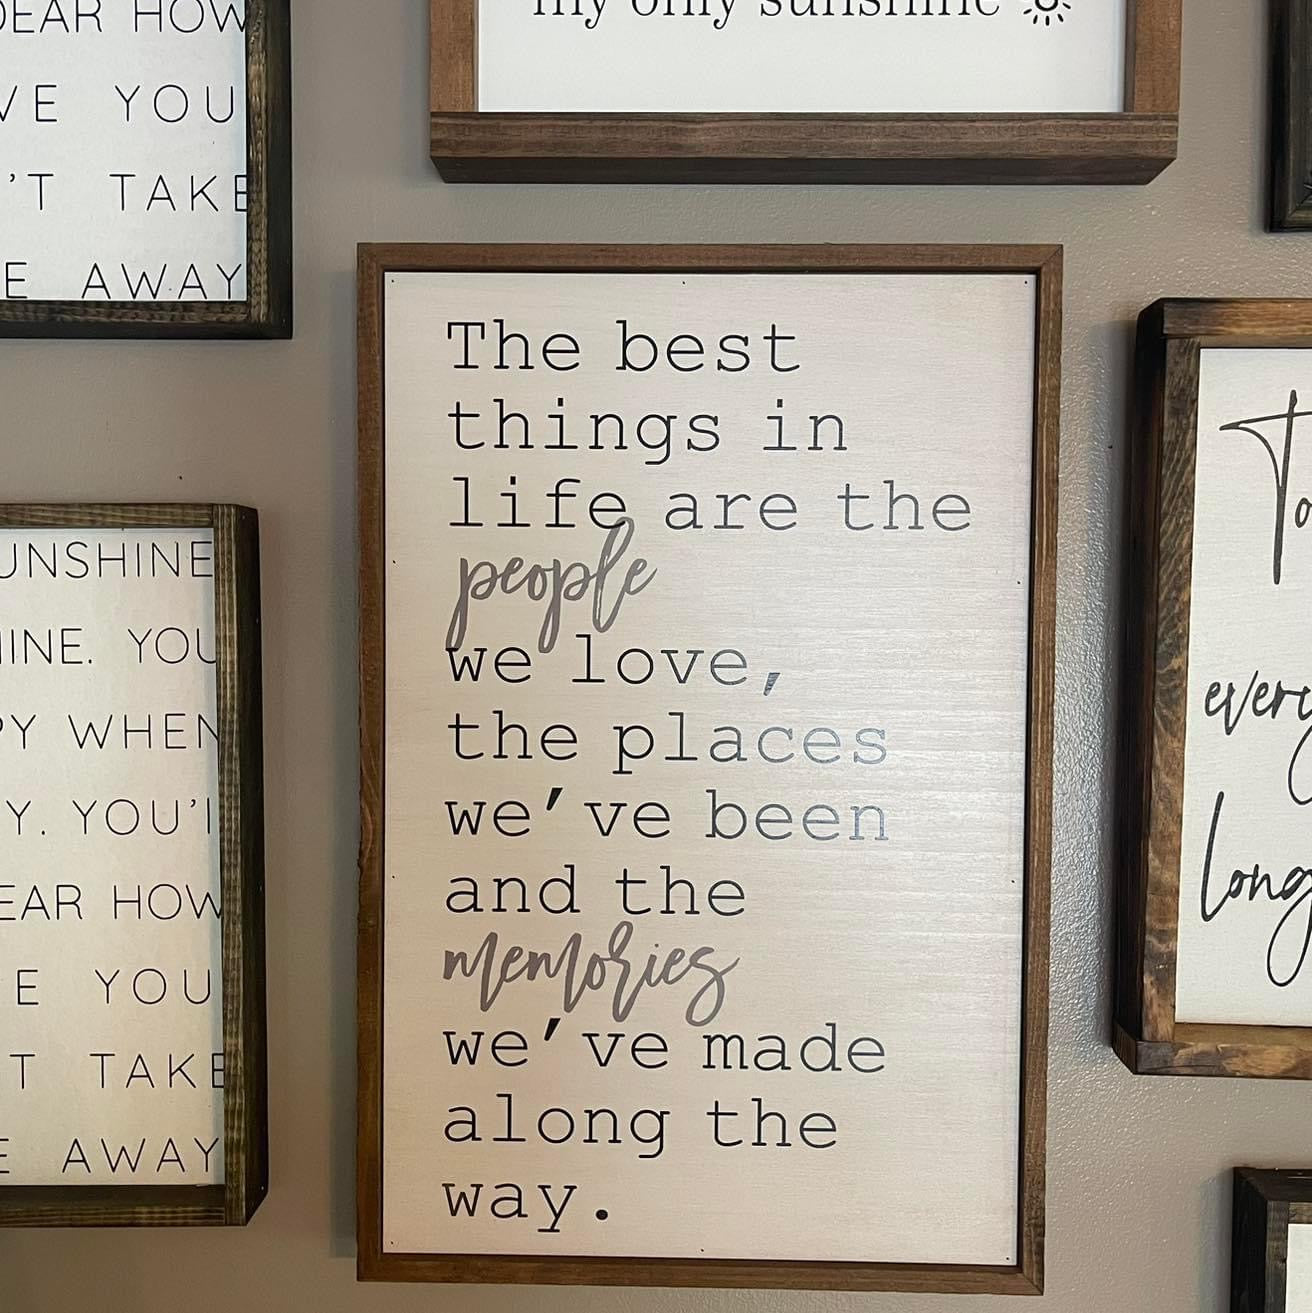 DEAR HOW
VE YOU
'T TAKE
E AWAY
my only sunshine
The best
things in
life are the
people
we love,
the places
we've been
and the
memories
we've made
along the
way.
UNSHINE
INE. YOU
PY WHEN
Y. YOU'
EAR HOW
E YOU
T TAKE
E AWAY
To
every
long